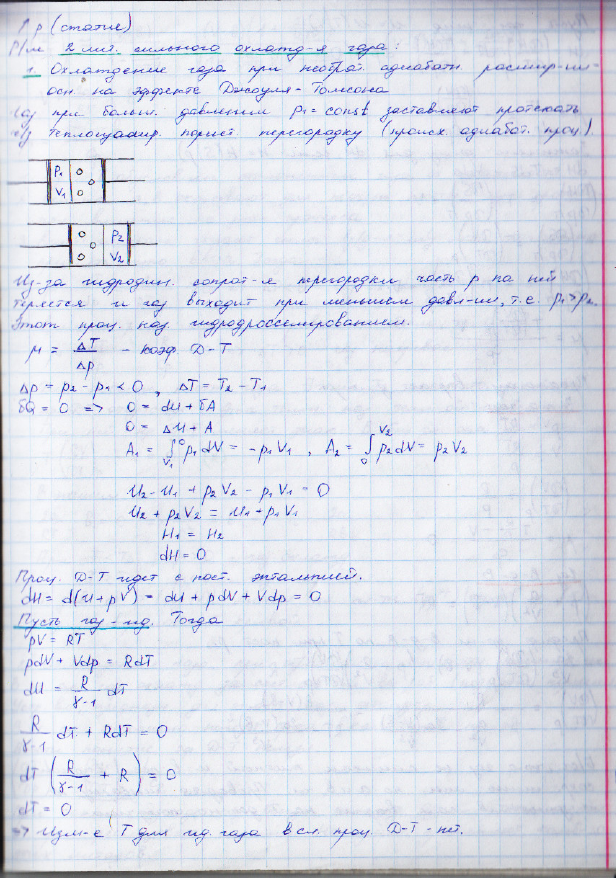 (статис)
Р/м 2 мет. сильного охлажд-я газа:
1. Охлаждение газа при необрат. адиабатн. расшир-ии-
осн. на эффекте Джоуля-Томсона
Газ при больш. давлении p₁ = const заставляют протекать
ч/з теплоизолир. порист. перегородку (происх. адиабат. проц.).
p₁
V₁
p₂
V₂
Из-за гидродин. сопрот-я перегородки часть p на ней
теряется и газ выходит при меньшем давл-ии, т.е. p₁ > p₂.
Этот проц. наз. гидродросселированием.
μ = ΔT/Δp - коэф Д-Т
Δp = p₂ - p₁ < 0 , ΔT = T₂ - T₁
δQ = 0 => 0 = dU + δA
0 = ΔU + A
A₁ = ∫_{V₁}^{0} p₁dV = -p₁V₁ , A₂ = ∫_{0}^{V₂} p₂dV = p₂V₂
U₂ - U₁ + p₂V₂ - p₁V₁ = 0
U₂ + p₂V₂ = U₁ + p₁V₁
H₁ = H₂
dH = 0
Проц. Д-Т идет с пост. энтальпией.
dH = d(U + pV) = dU + pdV + Vdp = 0
Пусть газ - ид. Тогда
pV = RT
pdV + Vdp = RdT
dU = R/(γ-1) dT
R/(γ-1) dT + RdT = 0
dT (R/(γ-1) + R) = 0
dT = 0
=> Изм-е T для ид. газа в сл. проц. Д-Т - нет.